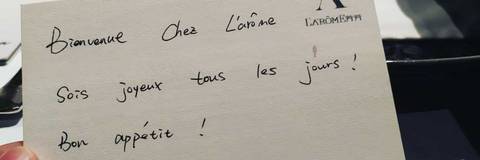 Bienvenue Chez L'arôme
L'ARÔME
Sois joyeux tous les jours !
Bon appétit !